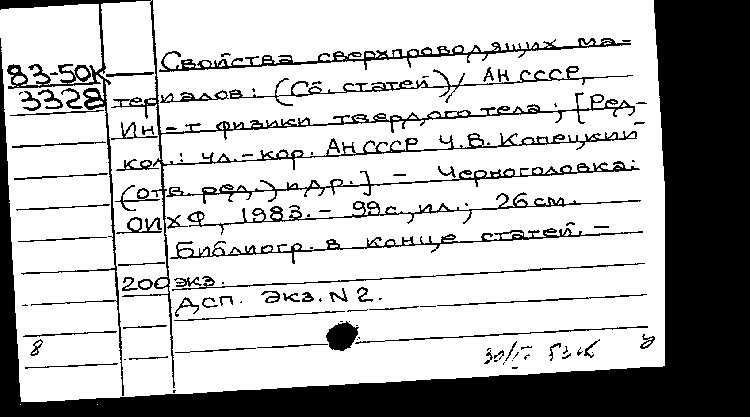 Свойства сверхпроводящих ма-
83-50К
3328
териалов: (Сб. статей) / АН СССР,
Ин-т физики твердого тела; [Ред.-
кол.: чл.-кор. АН СССР Ч.В. Копецкий
(отв. ред.) и др.] - Черноголовка:
ОИХФ, 1983. - 99с., ил.; 26см.
Библиогр. в конце статей. -
200 экз.
ДСП. Экз. N 2.
8
30/